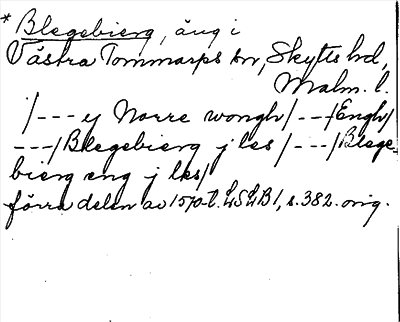 * Blegebierg, äng i
Västra Tommarps sn, Skytts hd,
Malm. l.
/--- ej Norre wongh/---/Engh/
---/Blegebierg j les /---/Blege-
bierg eng j les/
förra delen av 1570-t. LSLB1, s. 382. orig.